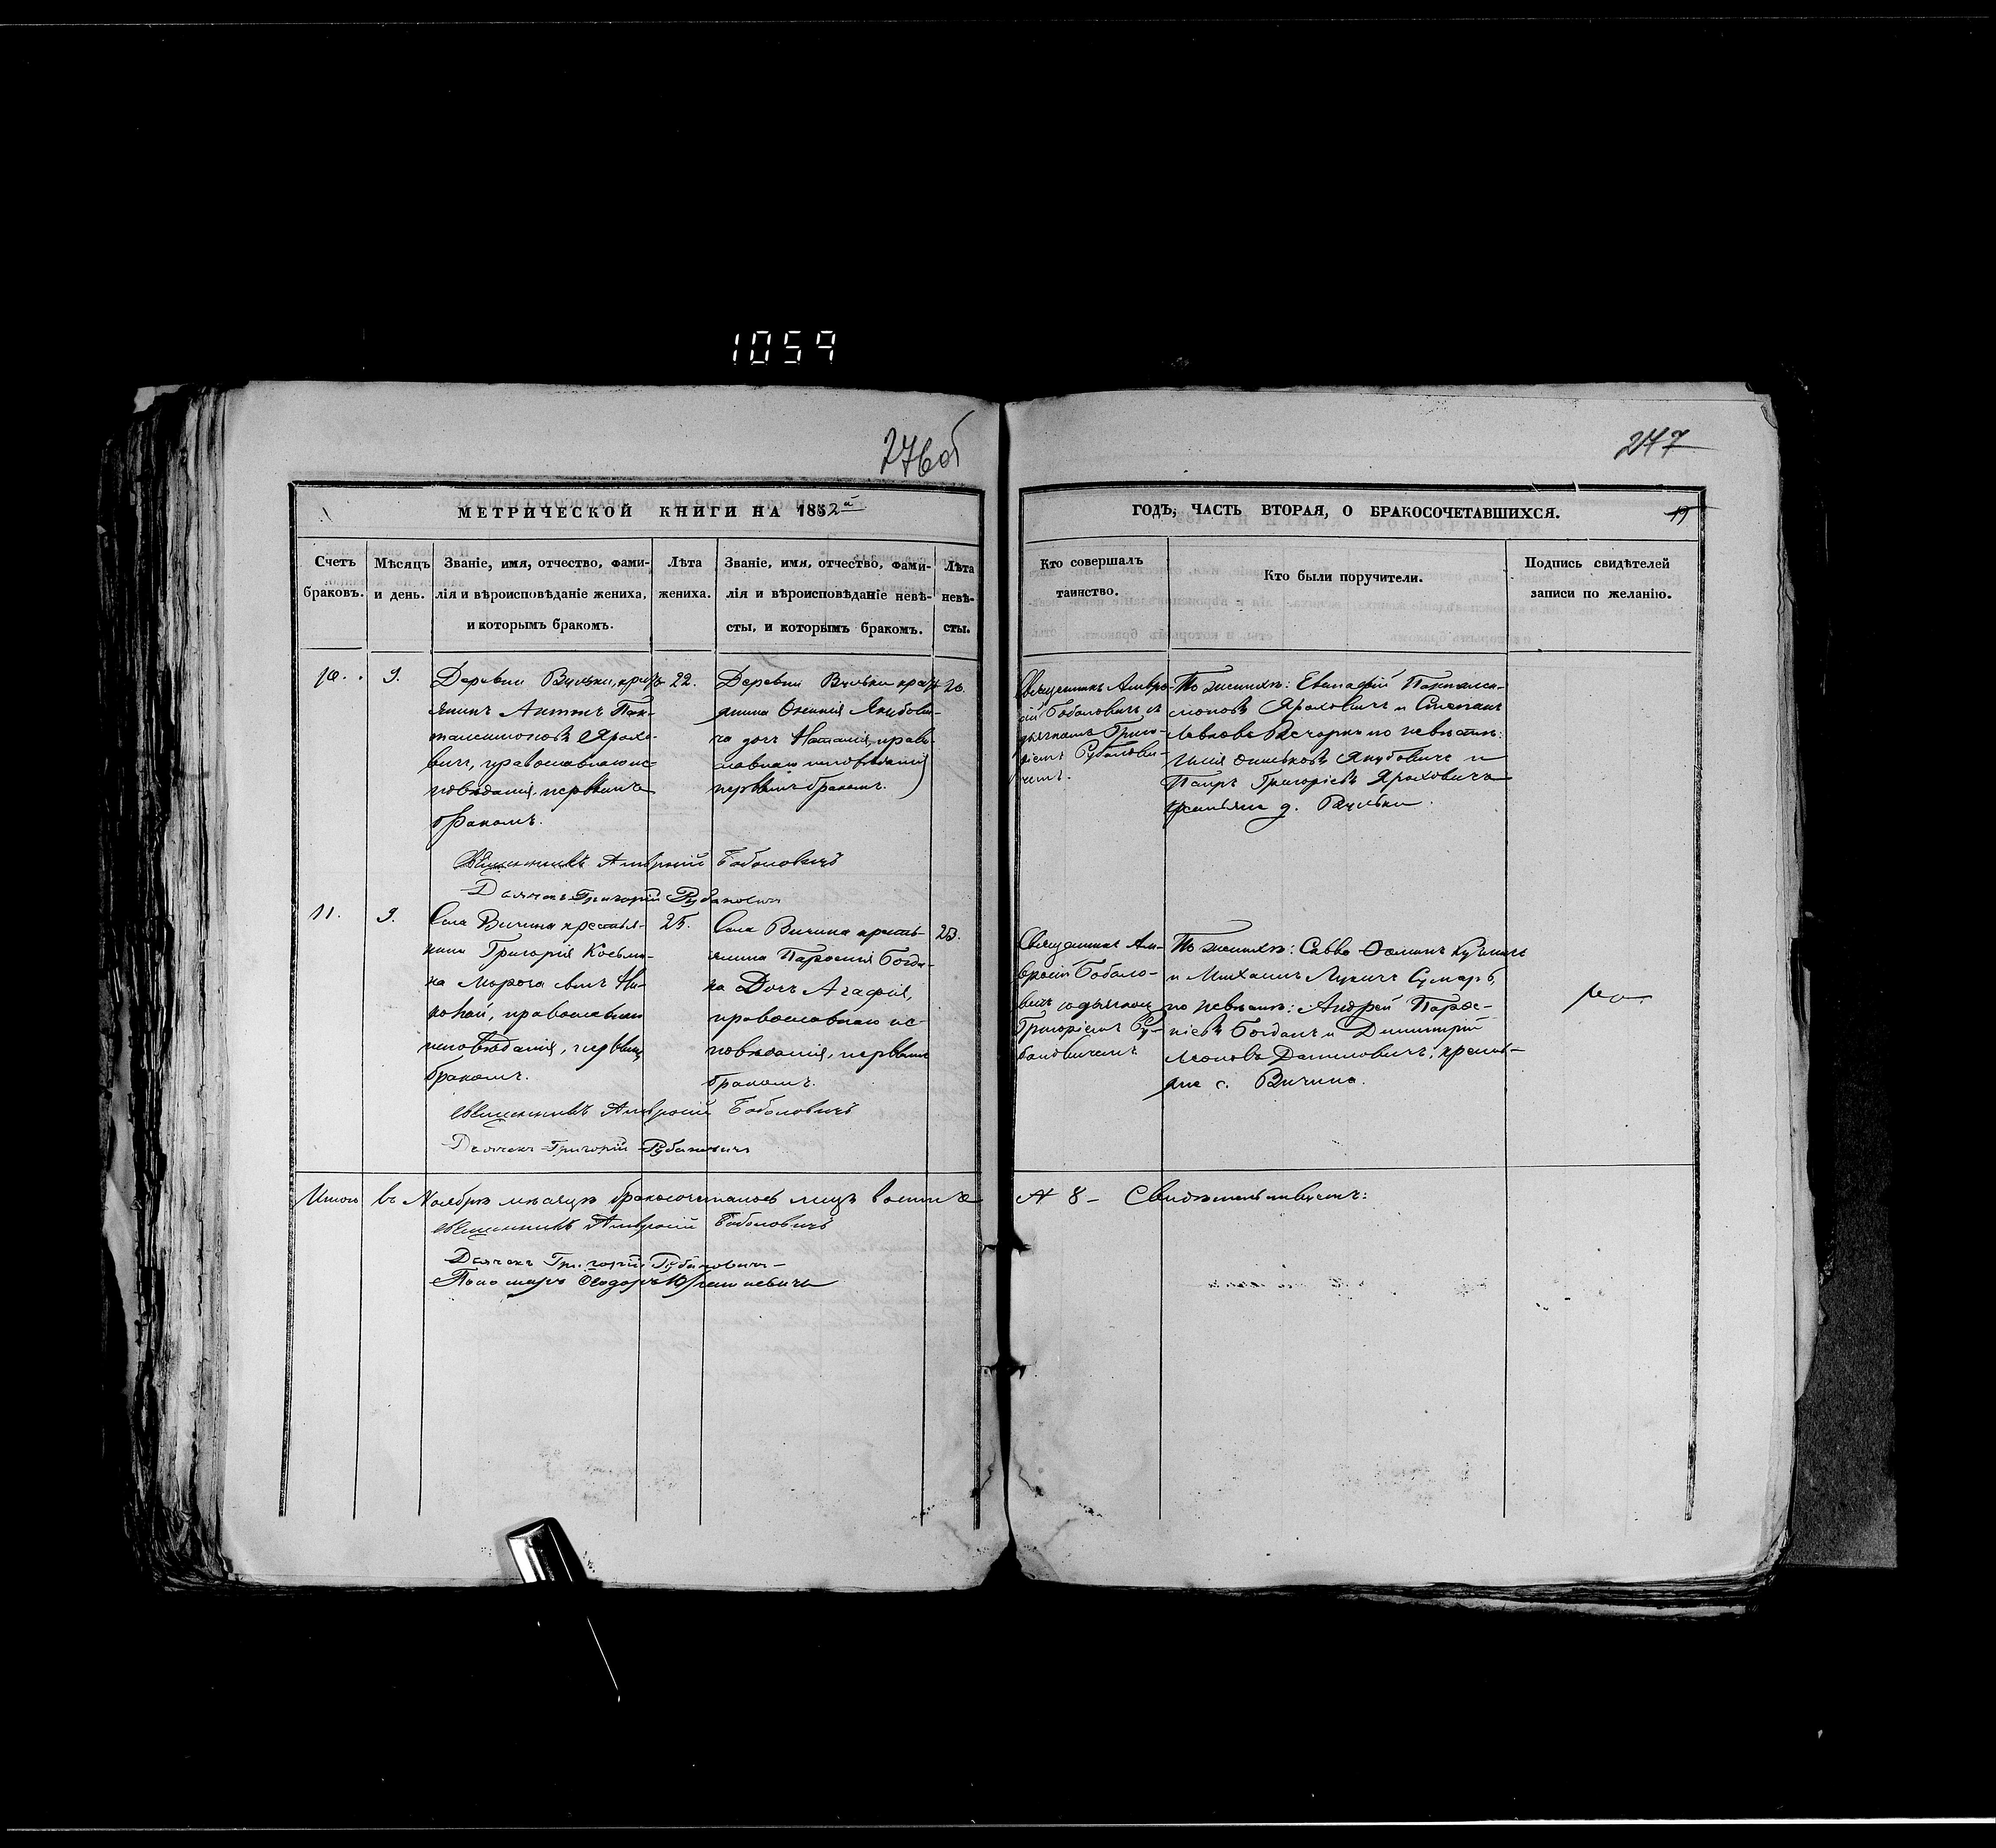 1059
276 об
277
МЕТРИЧЕСКОЙ КНИГИ НА 1852й
ГОДЪ, ЧАСТЬ ВТОРАЯ, О БРАКОСОЧЕТАВШИХСЯ.
19
Счетъ
браковъ.
Мѣсяцъ
и день.
Званіе, имя, отчество, фами-
лія и вѣроисповѣданіе жениха,
и которымъ бракомъ.
Лѣта
жениха.
Званіе, имя, отчество, фами-
лія и вѣроисповѣданіе невѣ-
сты, и которымъ бракомъ.
Лѣта
невѣ-
сты.
Кто совершалъ
таинство.
Кто были поручители.
Подпись свидѣтелей
записи по желанію.
10.
9.
Деревни Вульки, крест-
янинъ Антонъ Пан-
талеимоновъ Ярохо-
вичъ, православнаго ис-
повѣданія, первымъ
бракомъ.
22.
Деревни Вульки крест-
янина Якубови-
ча дочь Наталія, право-
славнаго исповѣданія
первымъ бракомъ.
20.
Священникъ Амвро-
сій Боболовичъ съ
дьячкомъ Григо-
ріемъ Рубанови-
чемъ.
По женихѣ: Евстафій Панталеи-
моновъ Яроховичъ и Степанъ
по невѣстѣ:
Якубовичъ и
Григоріевъ Яроховичъ
крестьяне д. Вульки.
Священникъ Амвросій Боболовичъ
Дьячекъ Григорій Рубановичъ
11.
9.
Села Вичина крестья-
нина Григорія Косьми-
на Мороза сынъ Ни-
колай, православнаго
исповѣданія, первымъ
бракомъ.
25.
Села Вичина кресть-
янина Парѳенія Богда-
на Дочь Агафія,
православнаго ис-
повѣданія, первымъ
бракомъ.
23.
Священникъ Ам-
вросій Боболо-
вичъ съ дьячкомъ
Григоріемъ Ру-
бановичемъ
По женихѣ: Савва
и Михаилъ
по невѣстѣ: Андрей Парѳе-
ніевъ Богданъ и Димитрій
Даниловичъ, кресть-
яне с. Вичина.
Священникъ Амвросій Боболовичъ
Дьячекъ Григорій Рубановичъ
Итого въ Ноябрѣ мѣсяцѣ бракосочеталось лицъ восемь
8 – Свидѣтельствуемъ:
Священникъ Амвросій Боболовичъ
Дьячекъ Григорій Рубановичъ
Пономарь Ѳеодоръ